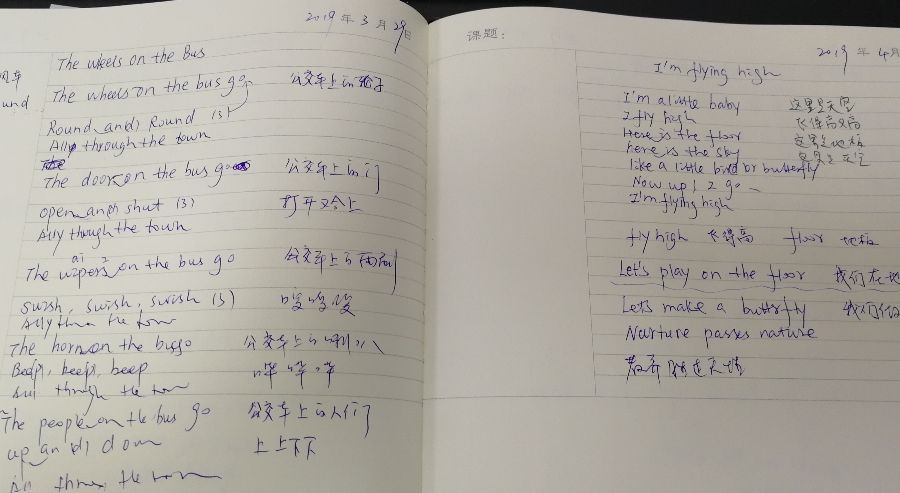 2019年3月29日
The wheels on the Bus
The wheels on the bus go 公交车上的轮子
und
Round and Round (3)
Ally through the town
The doors on the bus go 公交车上的门
open and shut (3) 打开又合上
Ally though the town
The wipers on the bus go 公交车上的雨刷
ai
swish, swish, swish (3) 唆唆唆
The horn on the bus go 公交车上的喇叭
Beep, beep, beep
The people on the bus go 公交车上的人们
up and down 上上下下
课题:
2019年4月
I'm flying high
I'm a little baby 这里是天空
I fly high 飞得高又高
Here is the floor 这里是地板
here is the sky 这里是天空
like a little bird or butterfly
Now up 1 2 go
I'm flying high
fly high 飞得高 floor 地板
Let's play on the floor 我们在地
Lets make a butterfly 我们
Nurture passes nature
教养胜过天性